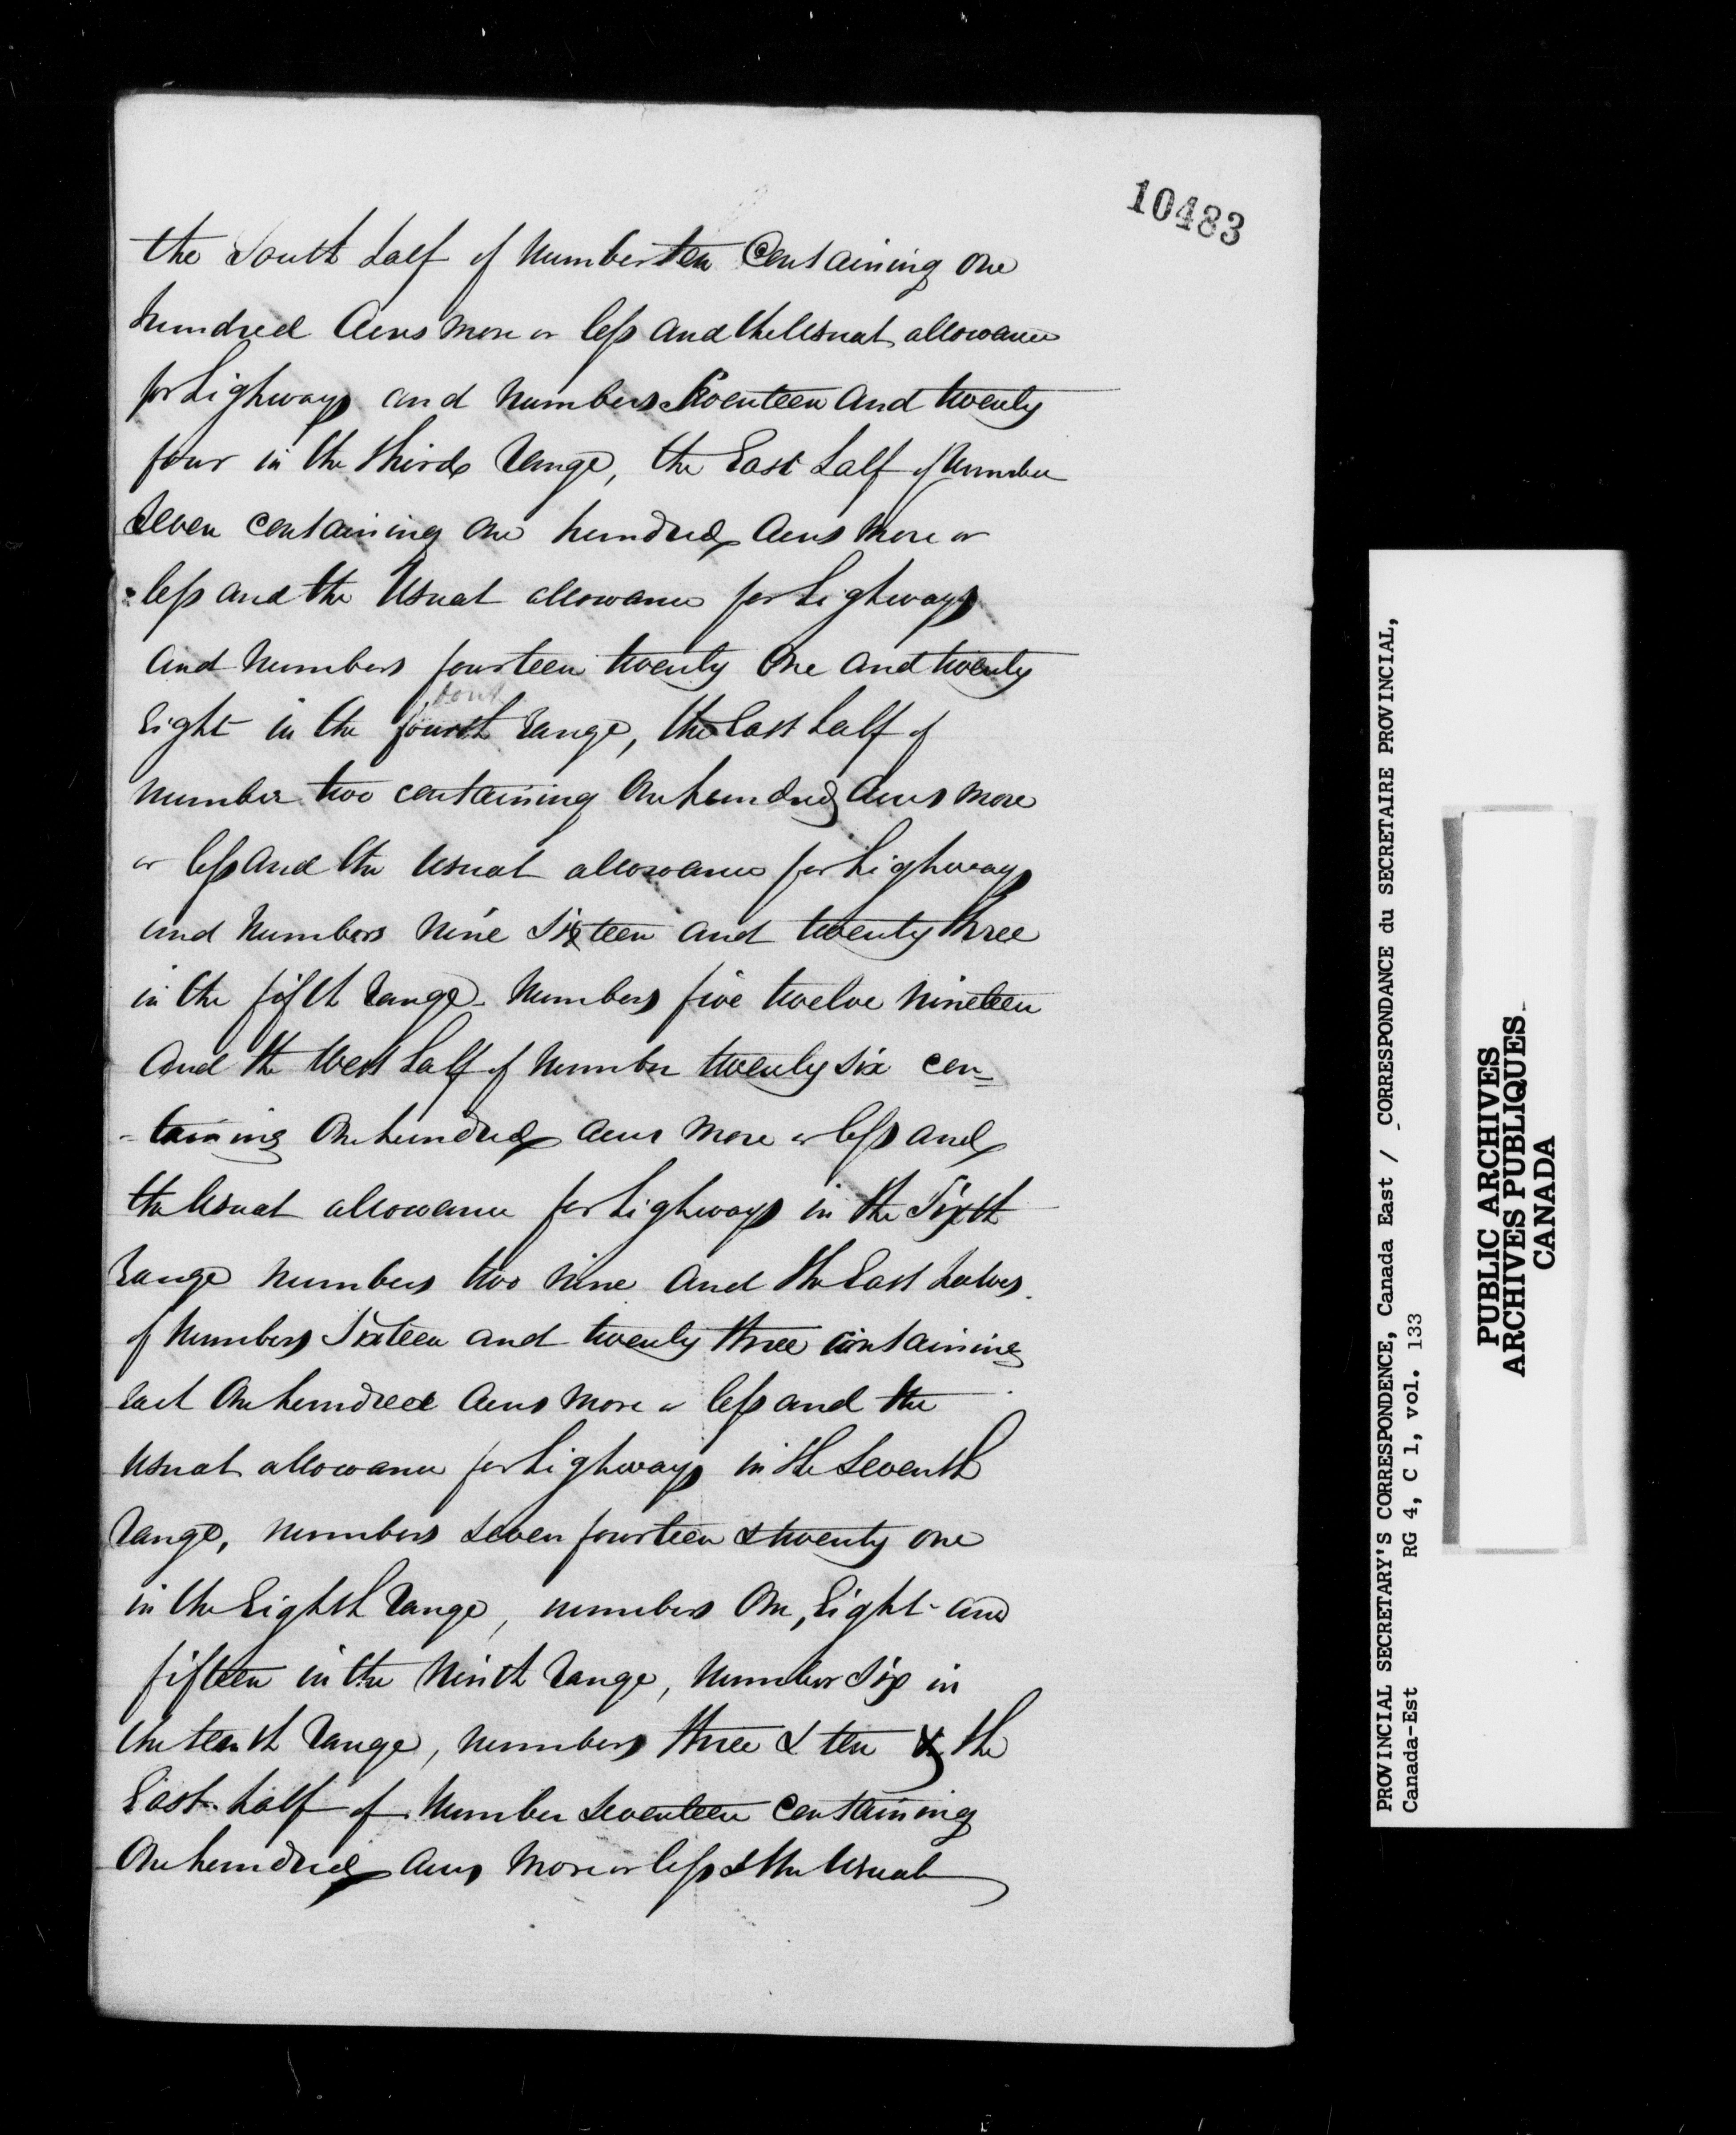 10483
the South half of Number ten Containing one
hundred Acres more or less and the Usual allowance
for highways and Numbers Seventeen and twenty
four in the third Range, the East half of Number
Seven containing One hundred Acres more or
less and the Usual allowance for highways
and Numbers fourteen twenty One and twenty
Eight in the fourth Range, the East half of
Number two containing One hundred Acres more
or less and the Usual allowance for highways
and Numbers Nine Sixteen and twenty three
in the fifth Range. Numbers five twelve Nineteen
and the West half of Number twenty six con=
=taining One hundred acres more or less and
the Usual allowance for highways in the Sixth
Range Numbers two Nine and the East halves
of Numbers Sixteen and twenty three containing
Each One hundred Acres more or less and the
Usual allowance for highways in the Seventh
Range, Numbers Seven fourteen & twenty one
in the Eighth Range, numbers One, Eight and
fifteen in the Ninth Range, Number Six in
the tenth Range, Numbers three & ten & the
East half of Number Seventeen Containing
One hundred acres More or less & the Usual
PROVINCIAL SECRETARY'S CORRESPONDENCE, Canada East / CORRESPONDANCE du SECRETAIRE PROVINCIAL,
Canada-Est RG 4, C 1, vol. 133
PUBLIC ARCHIVES
ARCHIVES PUBLIQUES
CANADA